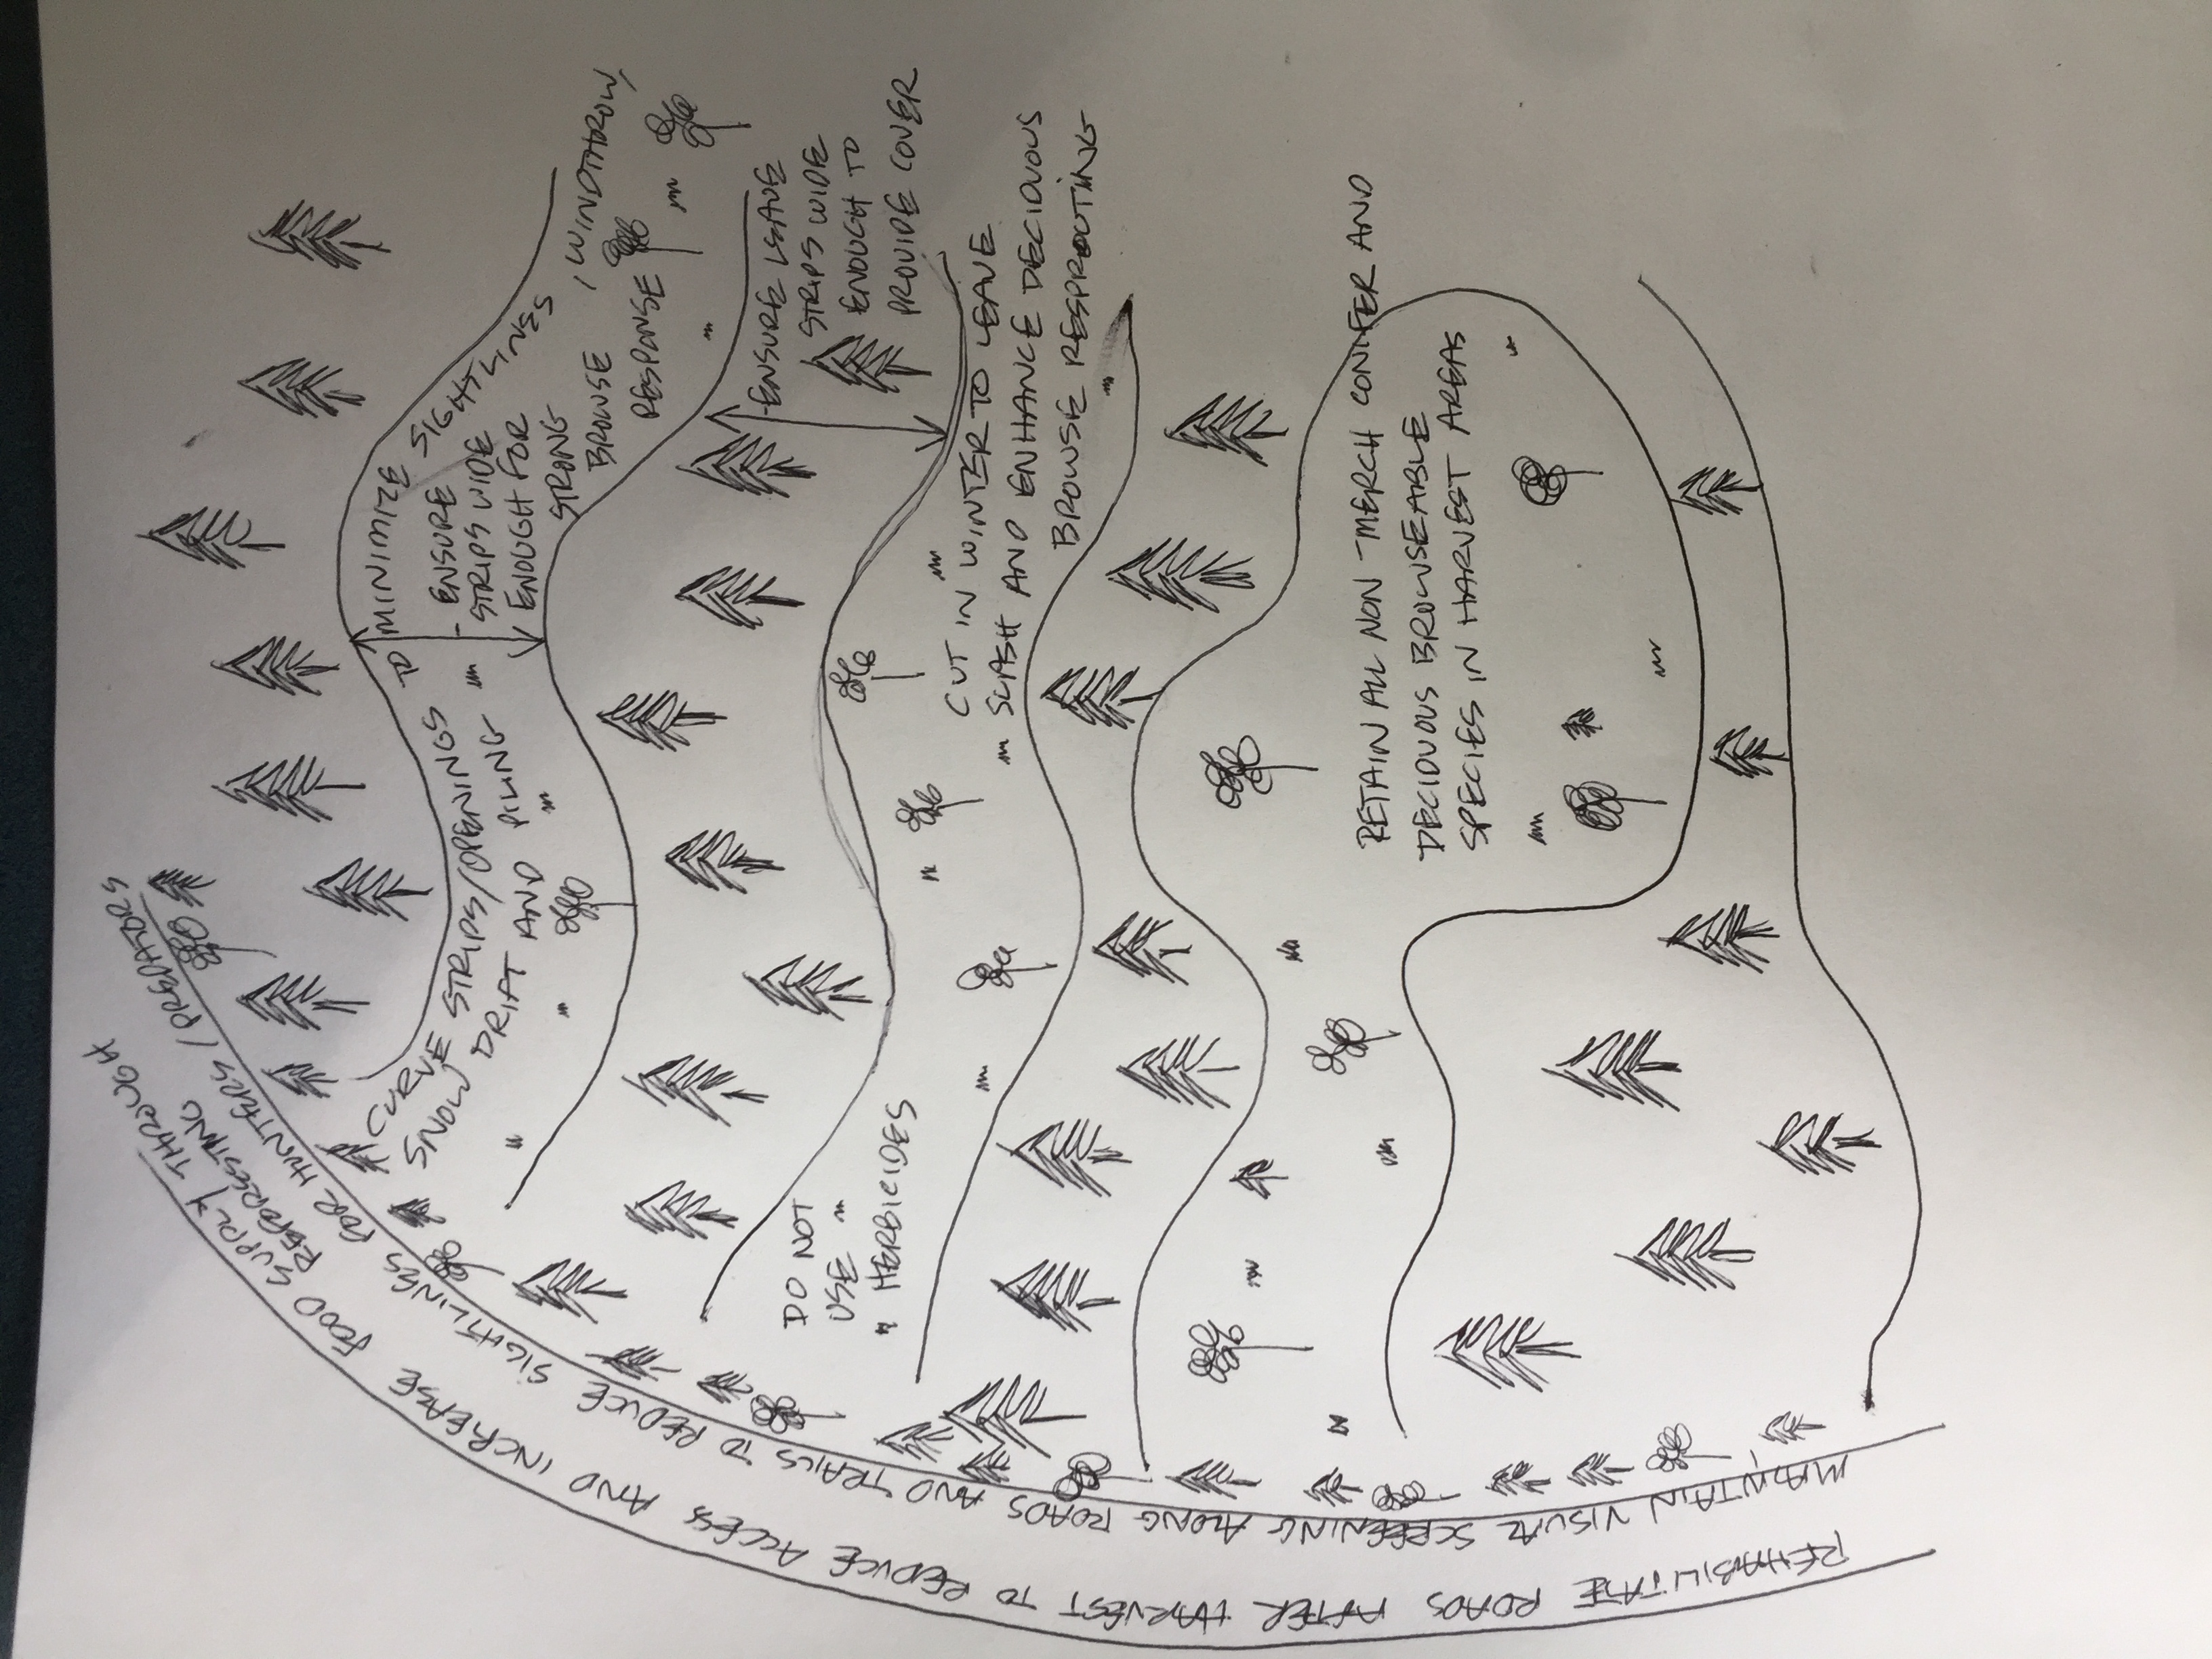 REHABILITATE ROADS AFTER HARVEST TO REDUCE ACCESS AND INCREASE FOOD SUPPLY THROUGH
REFORESTING
MAINTAIN VISUAL SCREENING ALONG ROADS AND TRAILS TO REDUCE SIGHTLINES FOR HUNTERS / PREDATORS
CURVE STRIPS/OPENINGS TO MINIMIZE SIGHTLINES, WINDTHROW,
SNOW DRIFT AND PILING
- ENSURE
STRIPS WIDE
ENOUGH FOR
STRONG
BROWSE
RESPONSE
- ENSURE LEAVE
STRIPS WIDE
ENOUGH TO
PROVIDE COVER
DO NOT
USE
HERBICIDES
CUT IN WINTER TO LEAVE
SLASH AND ENHANCE DECIDUOUS
BROWSE RESPROUTING
RETAIN ALL NON-MERCH CONIFER AND
DECIDUOUS BROWSEABLE
SPECIES IN HARVEST AREAS